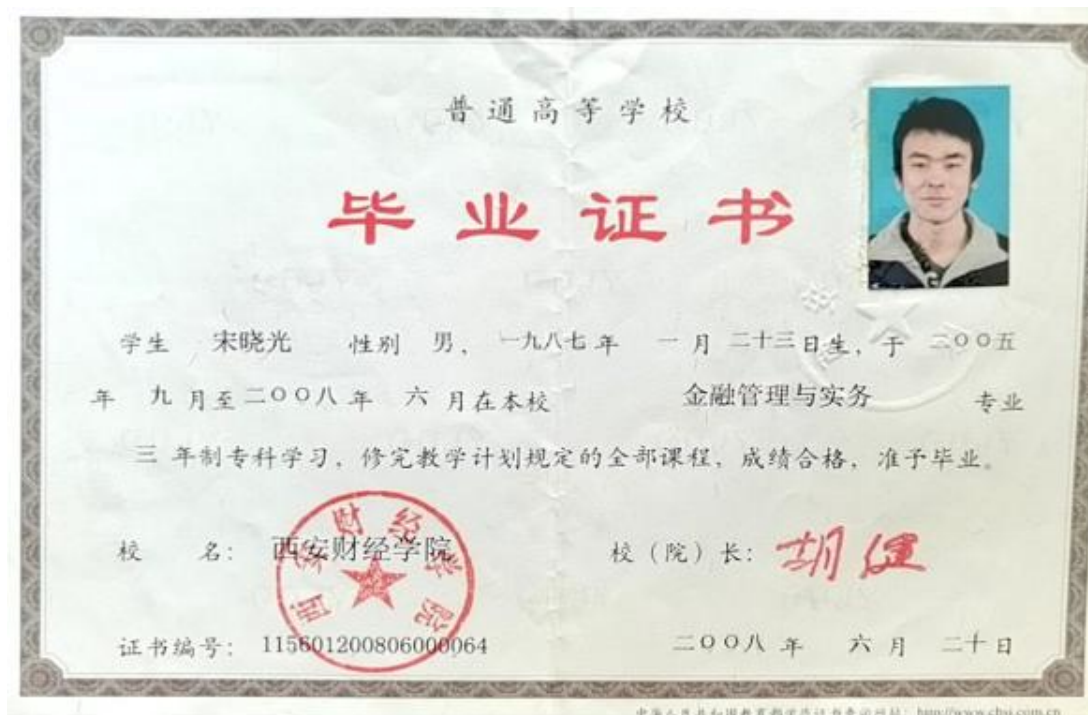 普通高等学校
毕业证书
学生 宋晓光 性别 男，一九八七年 一月二十三日生，于二〇〇五
年 九月至二〇〇八年 六月在本校 金融管理与实务 专业
三 年制专科学习，修完教学计划规定的全部课程，成绩合格，准予毕业。
校 名： 西安财经学院 校（院）长： 胡健
西安财经学院
证书编号： 115601200806000064 二〇〇八年 六月 二十日
中华人民共和国教育部学历证书查询网站：http://www.chsi.com.cn